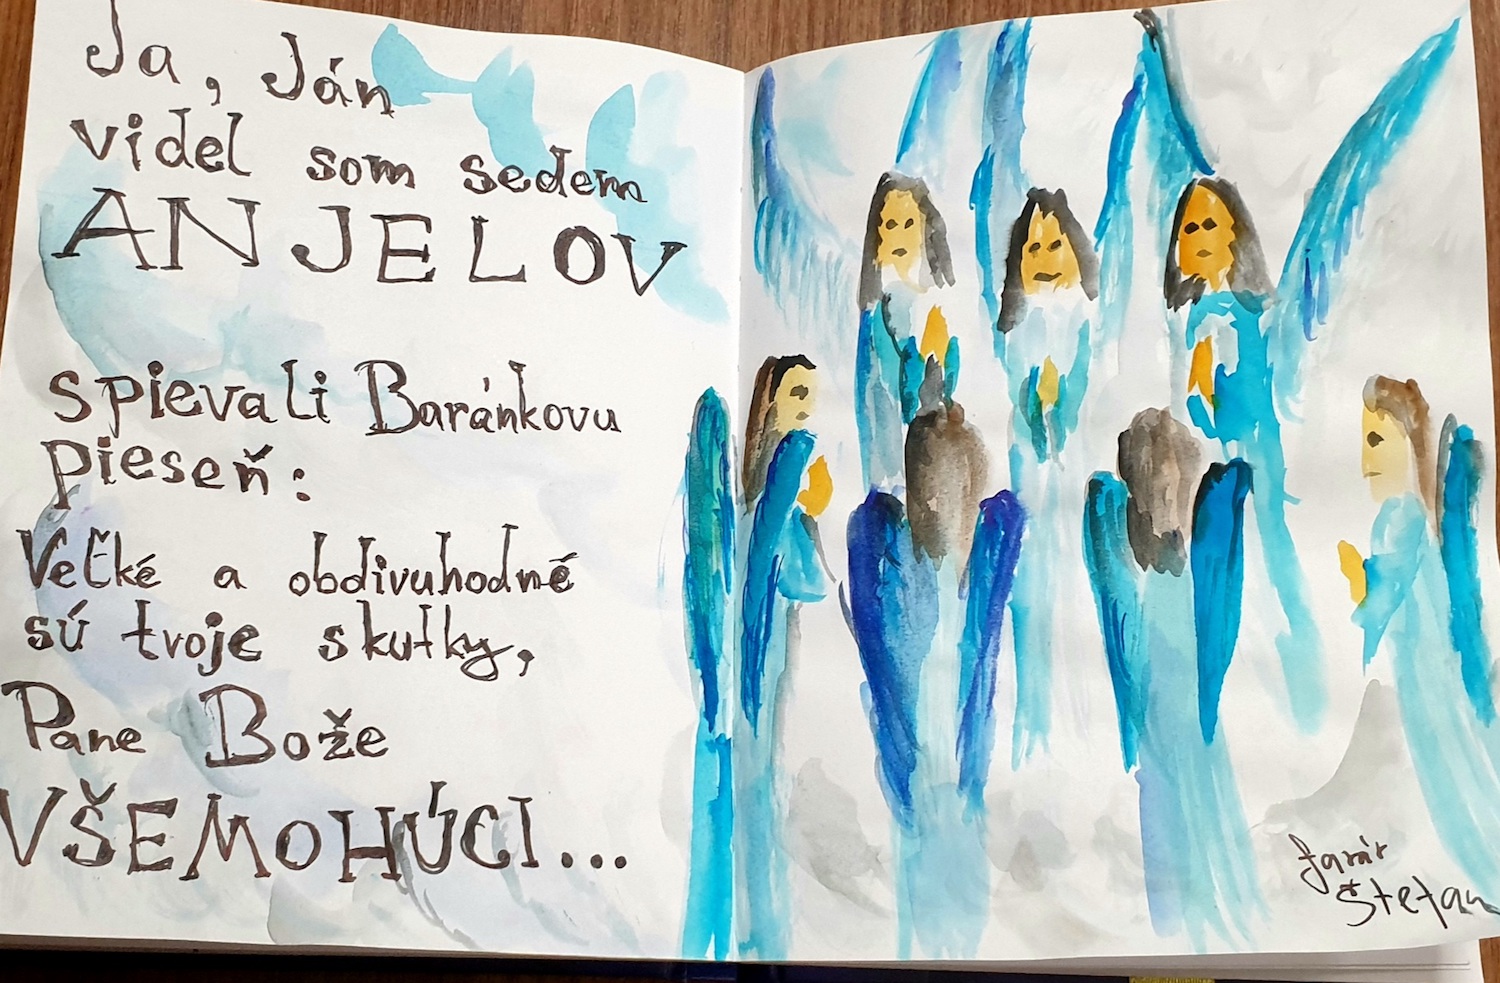 Ja, Ján
videl som sedem
ANJELOV
spievali Baránkovu
pieseň:
Veľké a obdivuhodné
sú tvoje skutky,
Pane Bože
VŠEMOHÚCI...
farár
Štefan